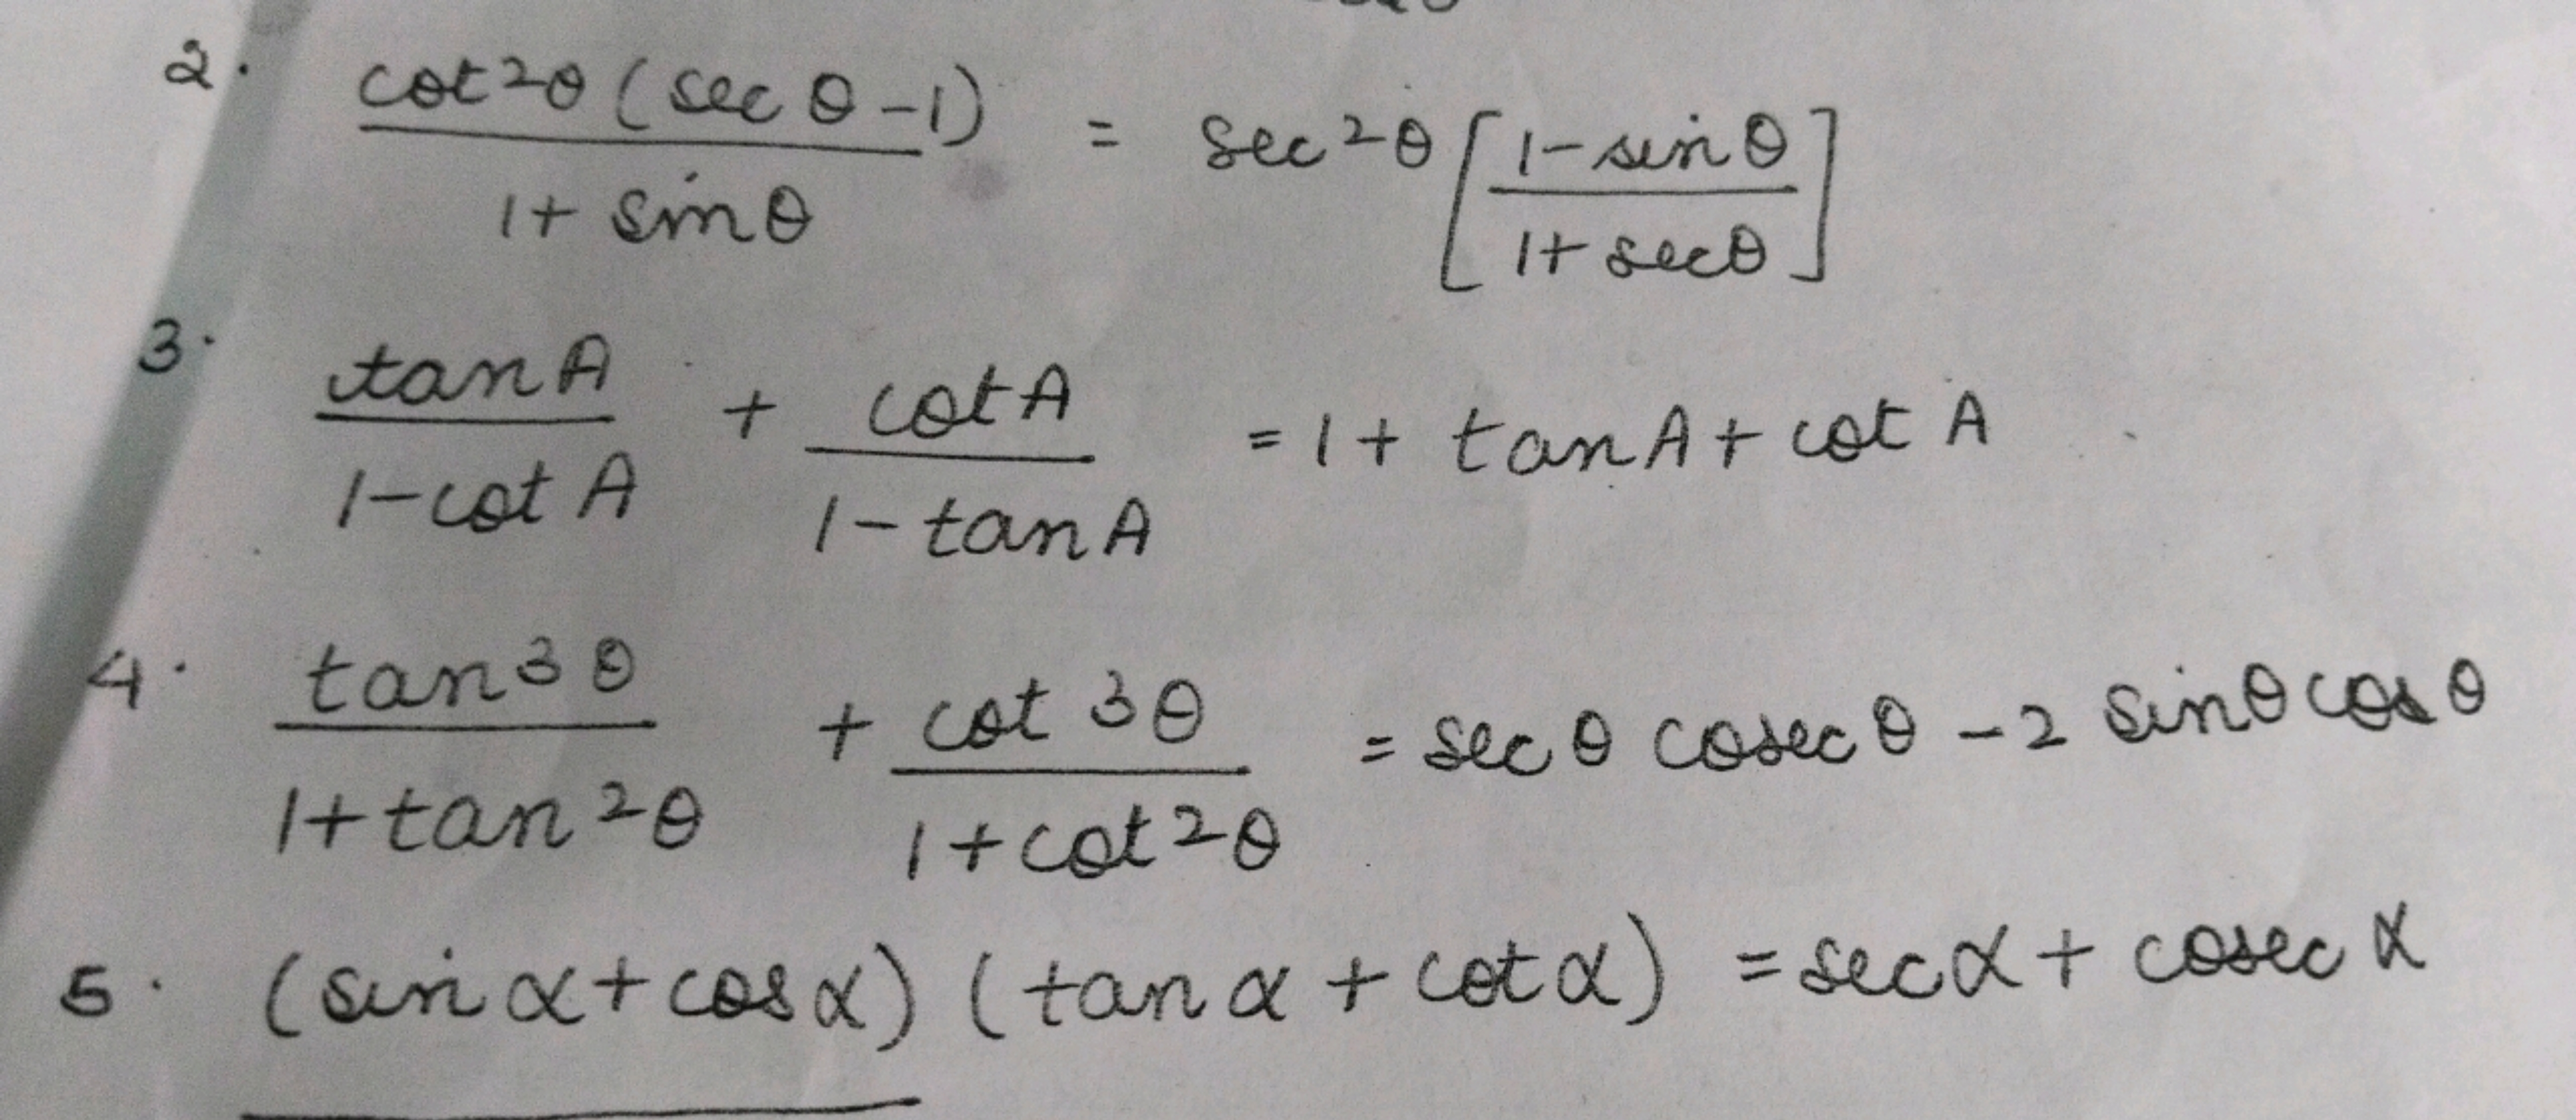 2. cot²θ(secθ-1) / 1+sinθ = sec²θ[1-sinθ / 1+secθ]
3. tanA / 1-cotA + cotA / 1-tanA = 1+tanA+cotA
4. tan³θ / 1+tan²θ + cot³θ / 1+cot²θ = secθ cosecθ - 2 sinθ cosθ
5. (sinα+cosα)(tanα+cotα) = secα+cosecα